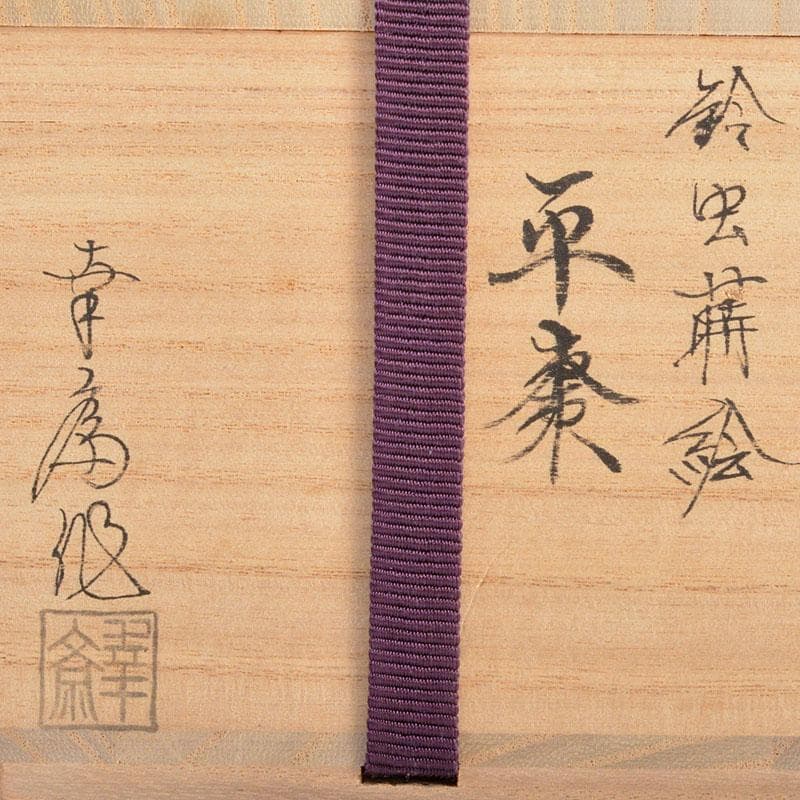 鈴虫蒔絵
平棗
幸 作